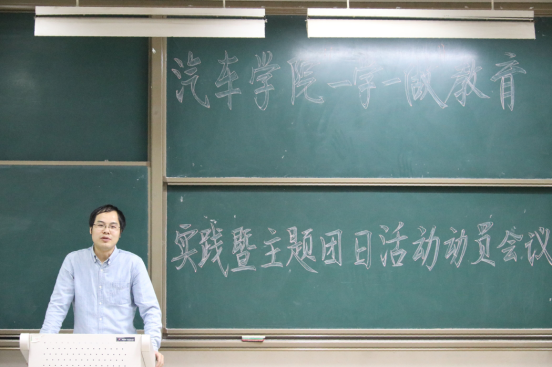 汽车学院一学一做教育
实践暨主题团日活动动员会议